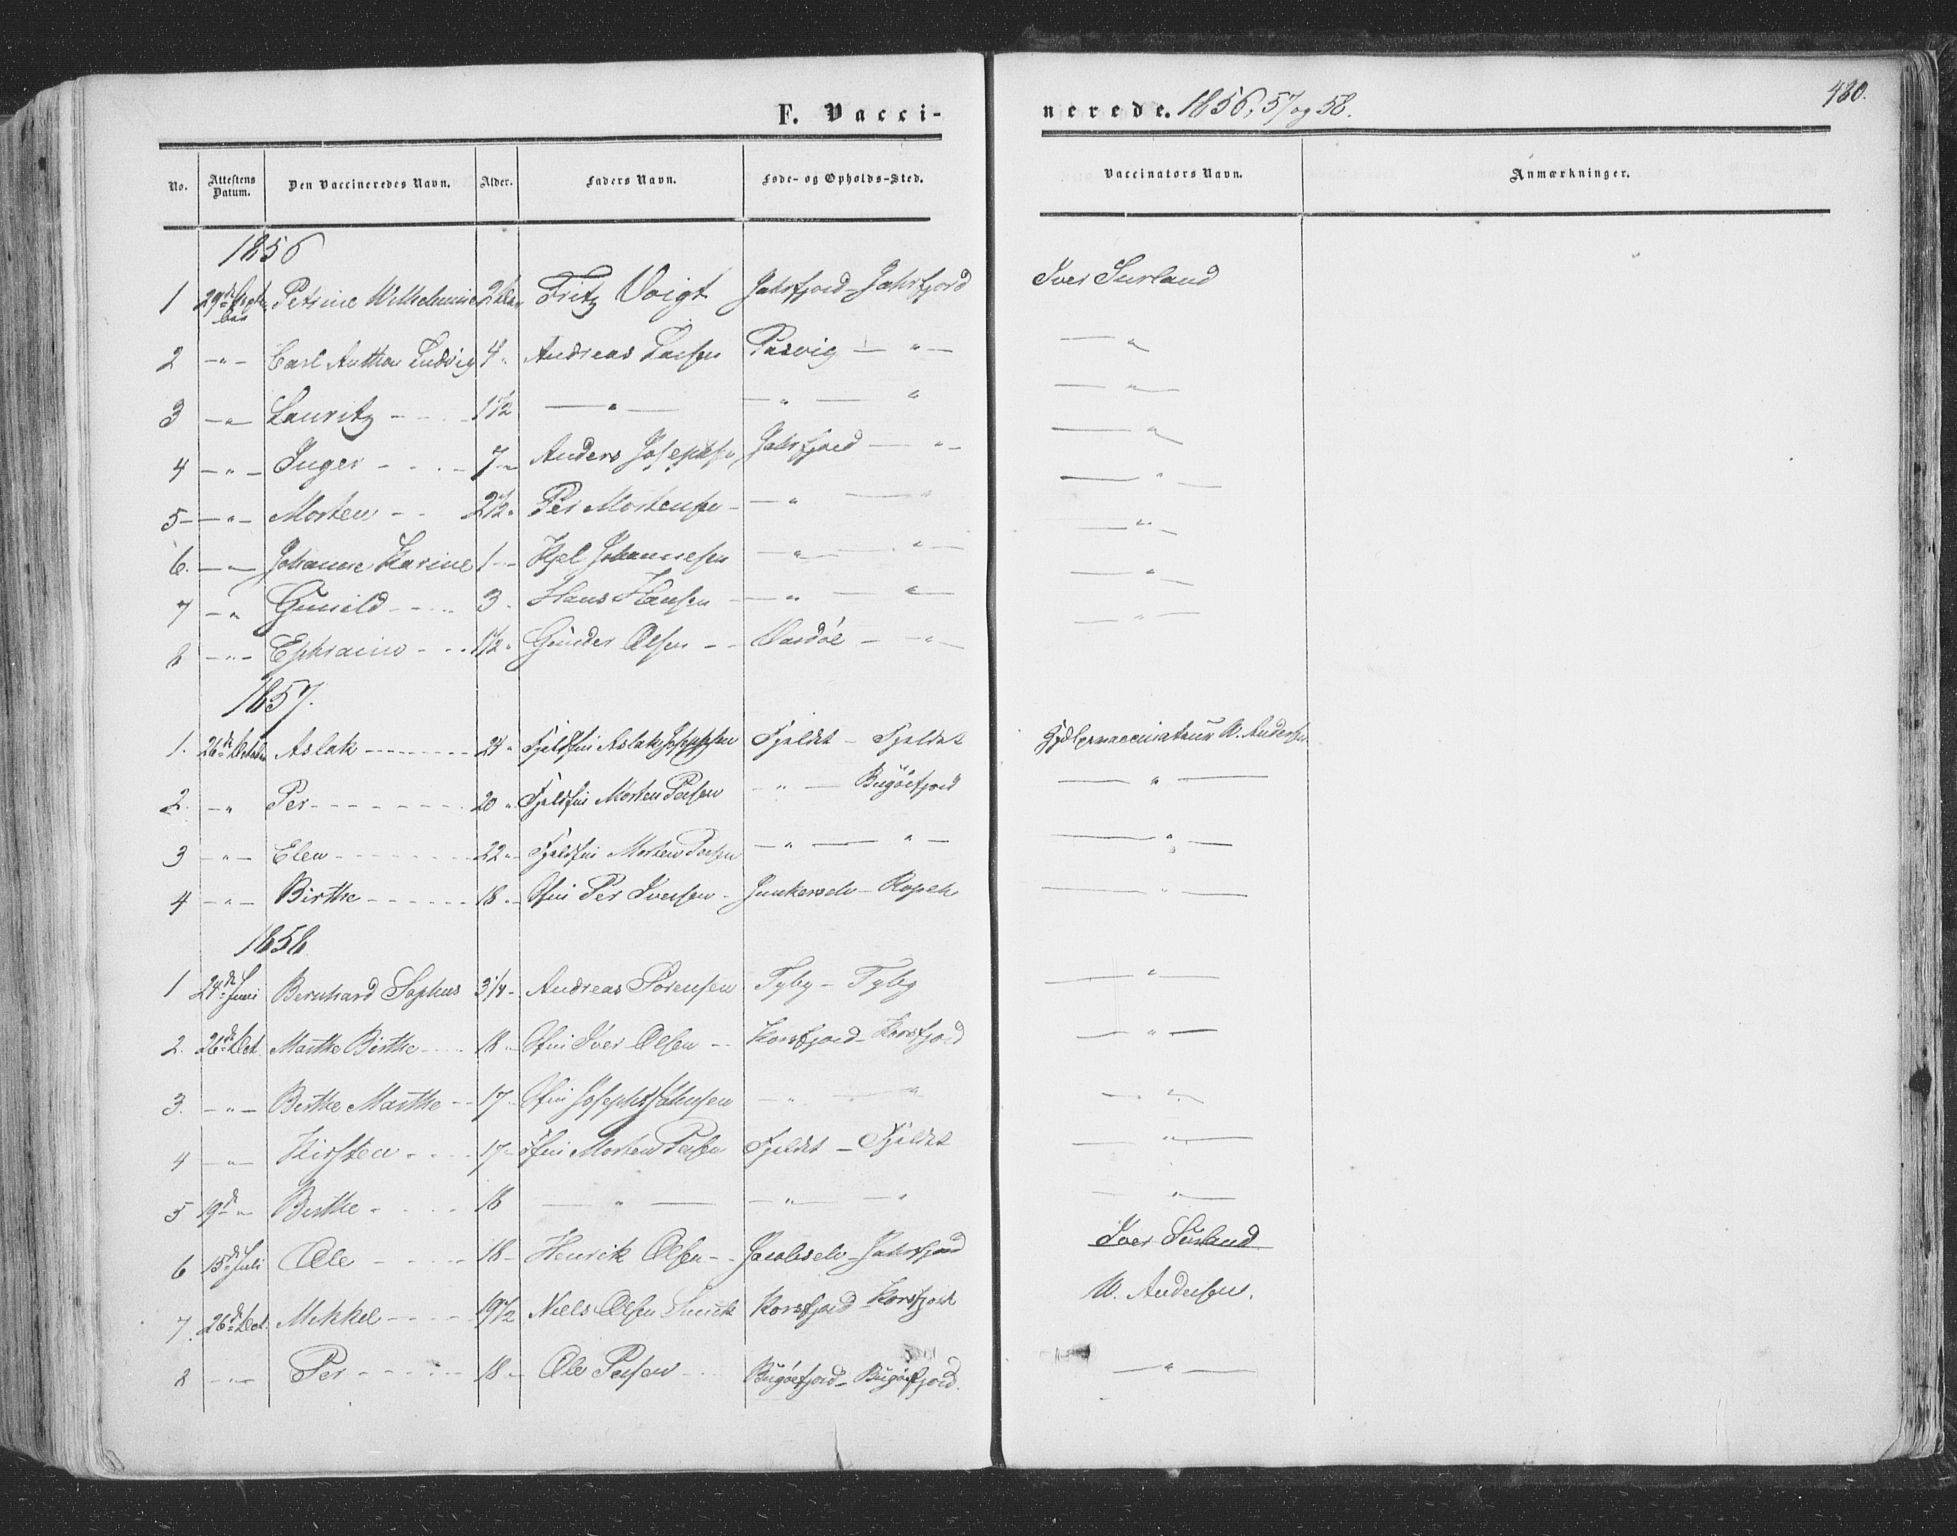 F. Vacci-
nerede. 1856, 57 og 58.
480.
No. Attestens Datum. Den Vaccineredes Navn. Alder. Faders Navn. Føde- og Opholds-Sted. Vaccinators Navn. Anmærkninger.
1856
1 29de Septbr Petrine Wilhelmine 2 Fritz Voigt Jahrfjord - Jahrfjord Iver Surland
2 - " - Carl Anthon Ludvig 4 " Andreas Pasvig — " — — " —
3 - " Lauritz - - - 1 1/2 — " — — " — " — " —
4 - " - Inger - - - 7 - " Anders Josephsen Jahrfjord — " - — " —
5 - " - Morten - - 2 1/2 " Per Mortensen - — " — " — " —
6. - " - Johanne Karine 1 - " - Kjel Johannesen — " — " — — " —
7 - " Gunild - - - 3 " Hans Hansen — " — " — — " —
8 - " - Ephraim - - - 1 1/2 " Gunder Olsen - - Vardøe - - " - — " —
1857.
1. 26de October Aslak - - - - 24 " Fjeldfin Aslak Josephsen Fjeldet - Fjeldet Hjelpevaccinateur W. Andersen
2. - " Per - - - - 20 " Fjeldfin Morten Persen " — Bugøefjord — " —
3 - " - Elen - - - - 22 " Fjeldfin Morten Persen — " — " — — " —
4 - " - Birthe - - - - 18 " Sfin Per Iversen - Junkerselv - Ropelv — " —
1858.
1 24de Juni Bernhard Sophus 3/4 - Andreas Sørensen Tyby - Tyby — " —
2. 26de Oct. Marthe Birthe - - - 18 " Sfin Iver Olsen - - Korsfjord - Korsfjord — " —
3. - " - Birthe Marthe - - 17 " Sfin Joseph Johnsen — " — " — " —
4 - " - Kirsten - - - 17 " Ffin Morten Persen Fjeldet - Fjeldet — " —
5 19de " Birthe - - - 18 — " — — " — " — " —
6 15de Juli Ole - - - - 18 - Henrik Olsen - - Jacobselv - Jahrfjord Iver Surland
7. 26de Oct. Mikkel - - - - 19 1/2 Niels Olsen Korsfjord - Korsfjord W. Andersen.
8 - " - Per - - - - 18 " Ole Persen - - Bugøefjord - Bugøefjord. — " —